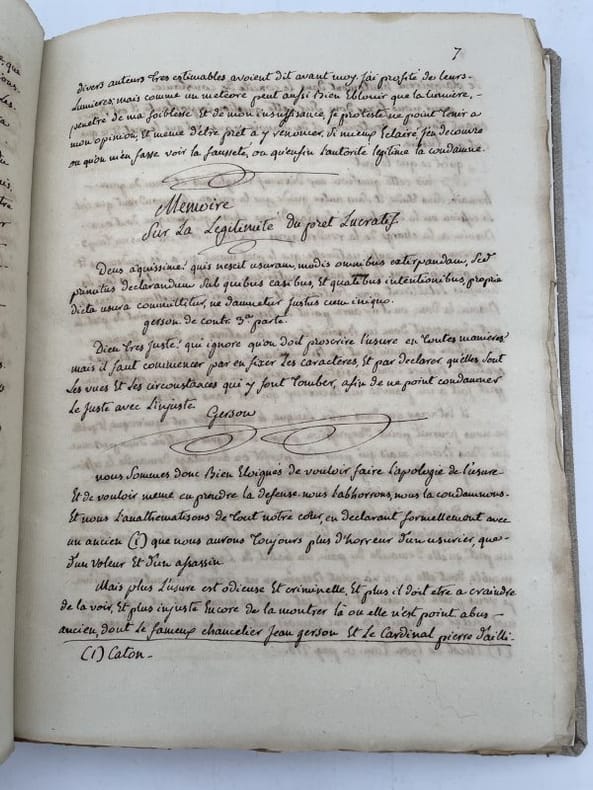 7
divers auteurs tres estimables avoient dit avant moy. J'ai profité de leurs
Lumieres; mais comme un meteore peut aussi Bien Eblouir que la lumiere, -
penetré de ma foiblesse Et de mon insuffisance, je proteste ne point tenir a
mon opinion, et meme d'etre pret a y renoncer, Si mieux Eclairé, J'en decouvre
ou qu'on m'en fasse voir la fausseté, ou qu'enfin L'autorité legitime la condamne.
Memoire
Sur La Legitimité Du pret Lucratif.
Deus aquissime! quis nescit usuram, modis omnibus exterpandam, Sed
punitus declarandum Sub quibus casibus, Et qualibus intentionibus, proprie
dicta usura committitur, ne damnetur Justus cum iniquo.
gerson de contr. 3a parte.
Dieu tres Juste! qui ignore qu'on doit proscrire l'usure en toutes manieres
mais il faut commencer par en fixer Les caractères, Et par declarer quelles Sont
Les vues Et Les circonstances qui y font tomber, afin de ne point condamner
Le Juste avec L'injuste
Gerson
nous Sommes donc Bien Eloignés de vouloir faire l'apologie de l'usure
Et de vouloir meme en prendre la defense nous L'abhorrons, nous la condamnons -
Et nous L'anathematisons de tout notre cœur, en declarant formellement avec
un ancien (1) que nous aurons toujours plus d'horreur d'un usurier, que
d'un voleur Et d'un assassin.
Mais plus L'usure est odieuse Et criminelle, Et plus il doit etre a craindre
de la voir, Et plus injuste Encore de la montrer là ou elle n'est point abus -
ancien, dont Le fameux chancelier Jean gerson Et Le Cardinal pierre d'ailli.
(1) Caton -